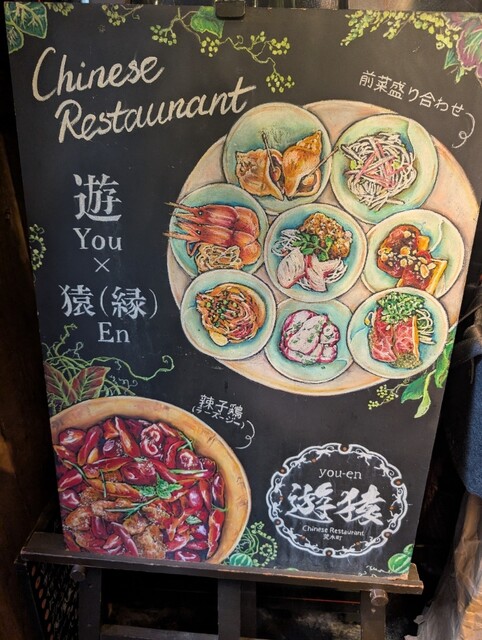 Chinese
Restaunant
前菜盛り合わせ
遊
You
×
猿(縁)
En
辣子鶏
(ラーズージー)
you-en
遊猿
Chinese Restaurant
荒木町